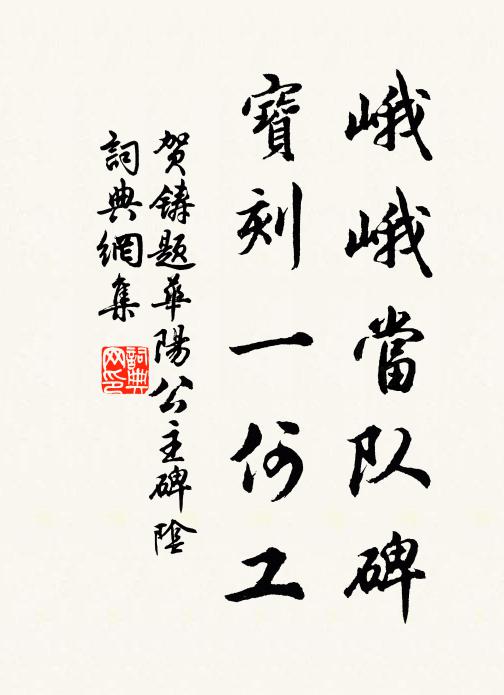 峨峨當队碑
寶刻一何工
贺鑄题華陽公主碑陰
詞典網集
詞典网印